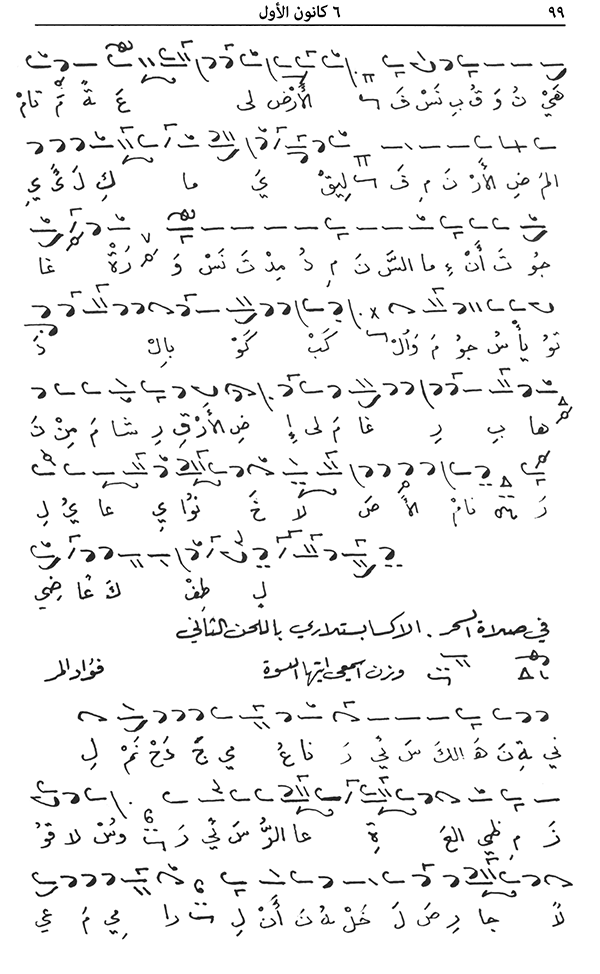 ٩٩ ٦ كانون الأول
هَيْ تُ وَ قُ بِ نَسْ فَ الأَرْضِ لى عَ ةً مَّ تامْ
الأَرْ نَ مِ فَ لِيقْ يَ ما كِ لَ
جو تَ أَنْ ءِ ما السَّ نَ مِ دُ مِدْ تَ نَسْ وَ رَةْ غا
تو يأْ سُ جو مَ وَالْ كَبْ كَوْ بِالْ دَ
ها بِ رِ غا مَ لى إِ ضِ الأَرْقِ رِ شا مَ مِنْ تَ
رَ نامْ الأَ صَ لا خَ نوا يِ عا يُ لِ
لِ طِفْ كَ عا ضِي
في صلاة السحر . الاكسابستلاري باللحن الثاني
وزن اسمعي ايتها النسوة فؤاد المر
ني يةِ نَ هَا لكَ سَ ني رَ ناعُ مي جَّ دَحْ نَمْ لِ
زَ مِ ظي العَ ةِ عا الرُّ سَ ني رَ وسْ لا قو
لاً جا رِ صَ لَ خَلْ هُ تَ أَنْ لِ دا مِي مَ عِي